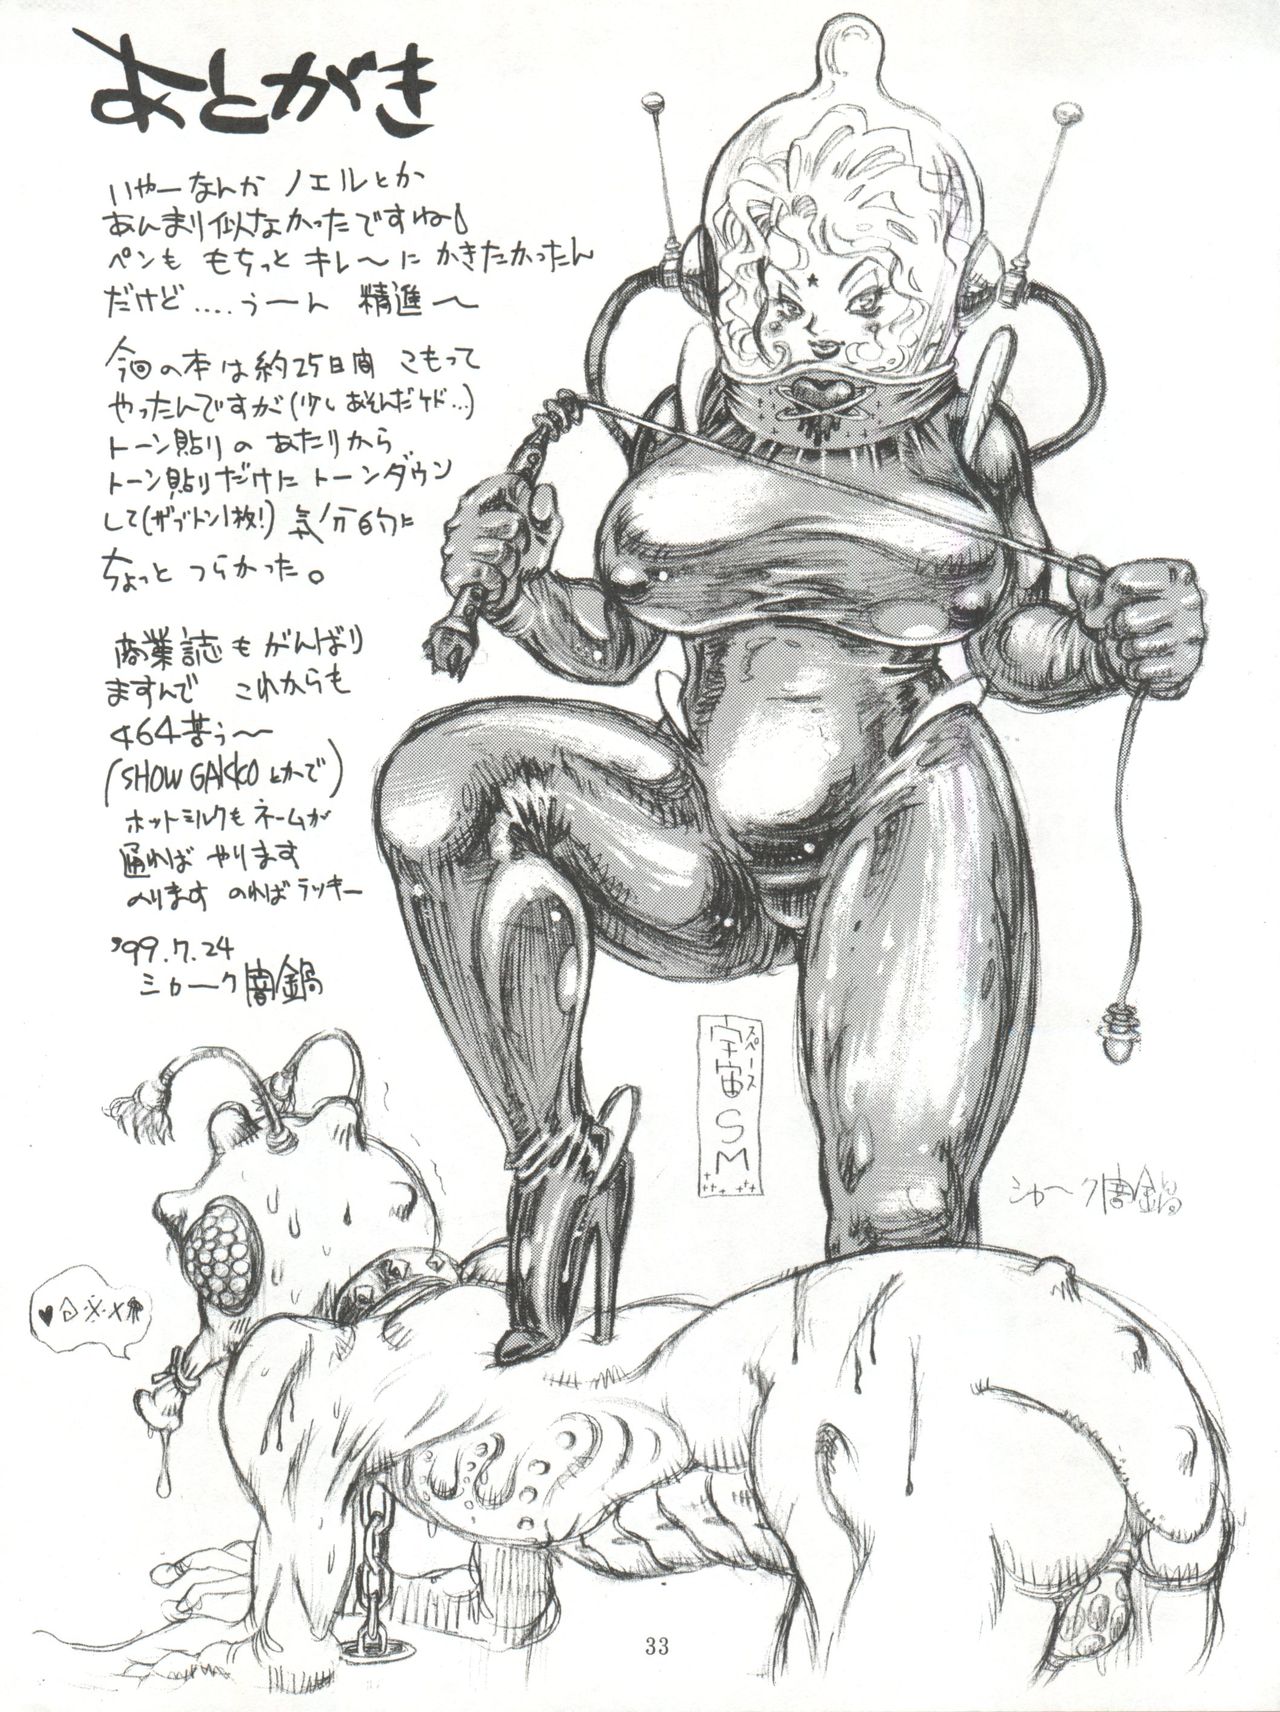 あとがき
いやーなんか ノエルとか
あんまり似なかったですね
ペンも もちっと キレ〜に かきたかったん
だけど....うーん 精進〜
今回の本は約25日間 こもって
やったんですが(少しあそんだケド...)
トーン貼りの あたりから
トーン貼りだけに トーンダウン
して(ザブトン1枚!) 気分的に
ちょっと つらかった。
商業誌もがんばり
ますんで これからも
464苦ぅ〜
(SHOW GAKKOとかで)
ホットミルクも ネームが
通れば やります
のります のればラッキー
'99.7.24
シャーク闇鍋
スペース
宇宙SM
シャーク闇鍋
33